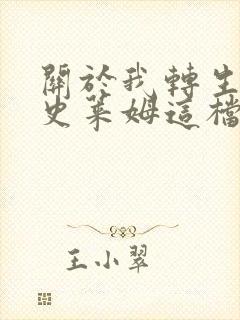 關於我轉生
史萊姆這檔
王小翠